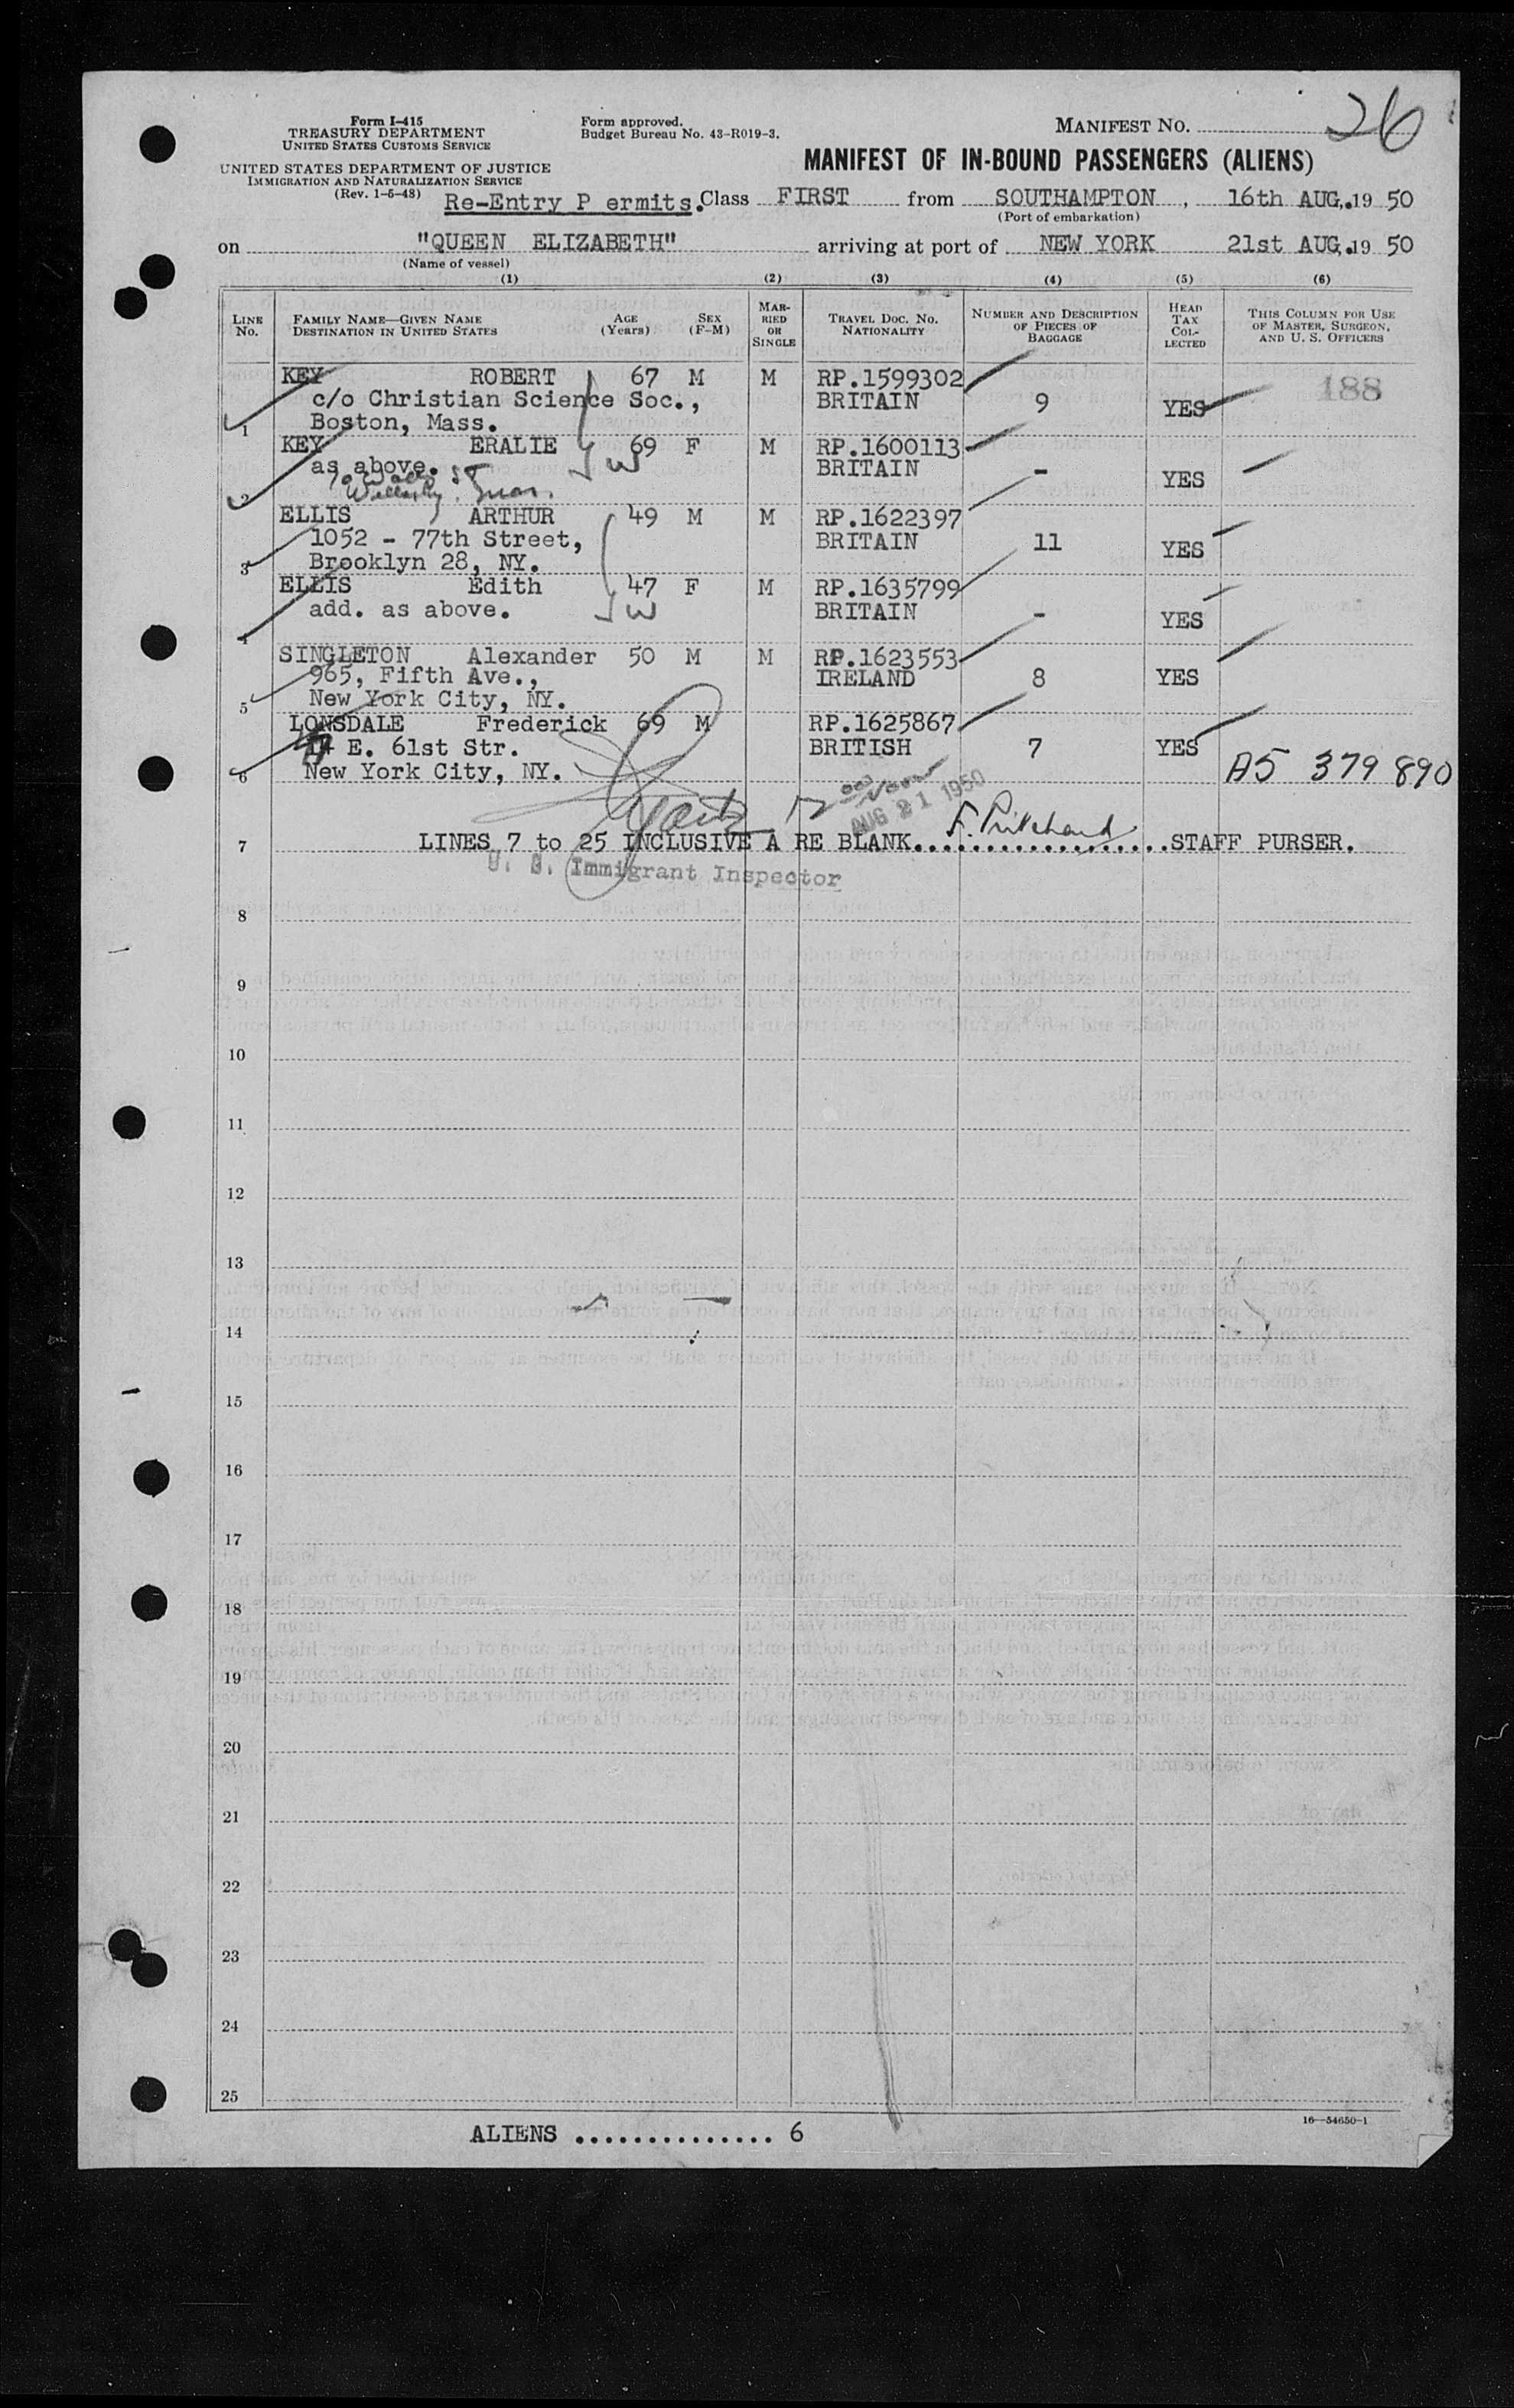 26
Form I-415
TREASURY DEPARTMENT
UNITED STATES CUSTOMS SERVICE
Form approved.
Budget Bureau No. 43-R019-3.
MANIFEST NO.
UNITED STATES DEPARTMENT OF JUSTICE
IMMIGRATION AND NATURALIZATION SERVICE
(Rev. 1-6-48)
MANIFEST OF IN-BOUND PASSENGERS (ALIENS)
Re-Entry P ermits. Class FIRST from SOUTHAMPTON, 16th AUG,.19 50
(Port of embarkation)
on "QUEEN ELIZABETH" arriving at port of NEW YORK 21st AUG,.19 50
(Name of vessel)
(1) (2) (3) (4) (5) (6)
LINE No. FAMILY NAME—GIVEN NAME DESTINATION IN UNITED STATES AGE (Years) SEX (F-M) MARRIED OR SINGLE TRAVEL DOC. NO. NATIONALITY NUMBER AND DESCRIPTION OF PIECES OF BAGGAGE HEAD TAX COLLECTED THIS COLUMN FOR USE OF MASTER, SURGEON, AND U. S. OFFICERS
KEY ROBERT 67 M M RP.1599302 188
c/o Christian Science Soc., BRITAIN 9 YES
1 Boston, Mass.
KEY ERALIE 69 F M RP.1600113
as above. W BRITAIN - YES
2
ELLIS ARTHUR 49 M M RP.1622397
1052 - 77th Street, BRITAIN 11 YES
3 Brooklyn 28, NY.
ELLIS Edith 47 F M RP.1635799
add. as above. W BRITAIN - YES
4
SINGLETON Alexander 50 M M RP.1623553
965, Fifth Ave., IRELAND 8 YES
5 New York City, NY.
LONSDALE Frederick 69 M RP.1625867
E. 61st Str. BRITISH 7 YES
6 New York City, NY. A5 379 890
AUG 21 1950
7 LINES 7 to 25 INCLUSIVE A RE BLANK. F. Pritchard STAFF PURSER.
U. S. Immigrant Inspector
8
9
10
11
12
13
14
15
16
17
18
19
20
21
22
23
24
25
16—54650-1
ALIENS ............... 6